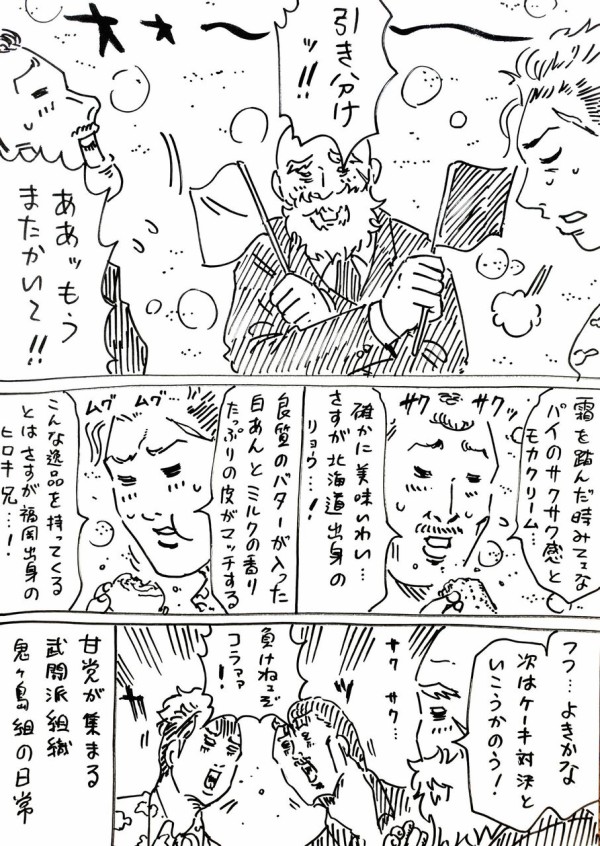 引き分け
ッ!!
オォ〜〜
ああッもう
またかいて!!
霜を踏んだ時みてェな
パイのサクサク感と
モカクリーム…
サクッ
サク
確かに美味いわい…
さすが北海道出身の
リョウ…!
良質のバターが入った
白あんとミルクの香り
たっぷりの皮がマッチする
ムグ…
ムグ
こんな逸品を持ってくる
とはさすが福岡出身の
ヒロキ兄…!
フフ…よきかな
次はケーキ対決と
いこうかのう!
サク
サク…
負けねェぞ
コラァァ
!
甘党が集まる
武闘派組織
鬼ヶ島組の日常